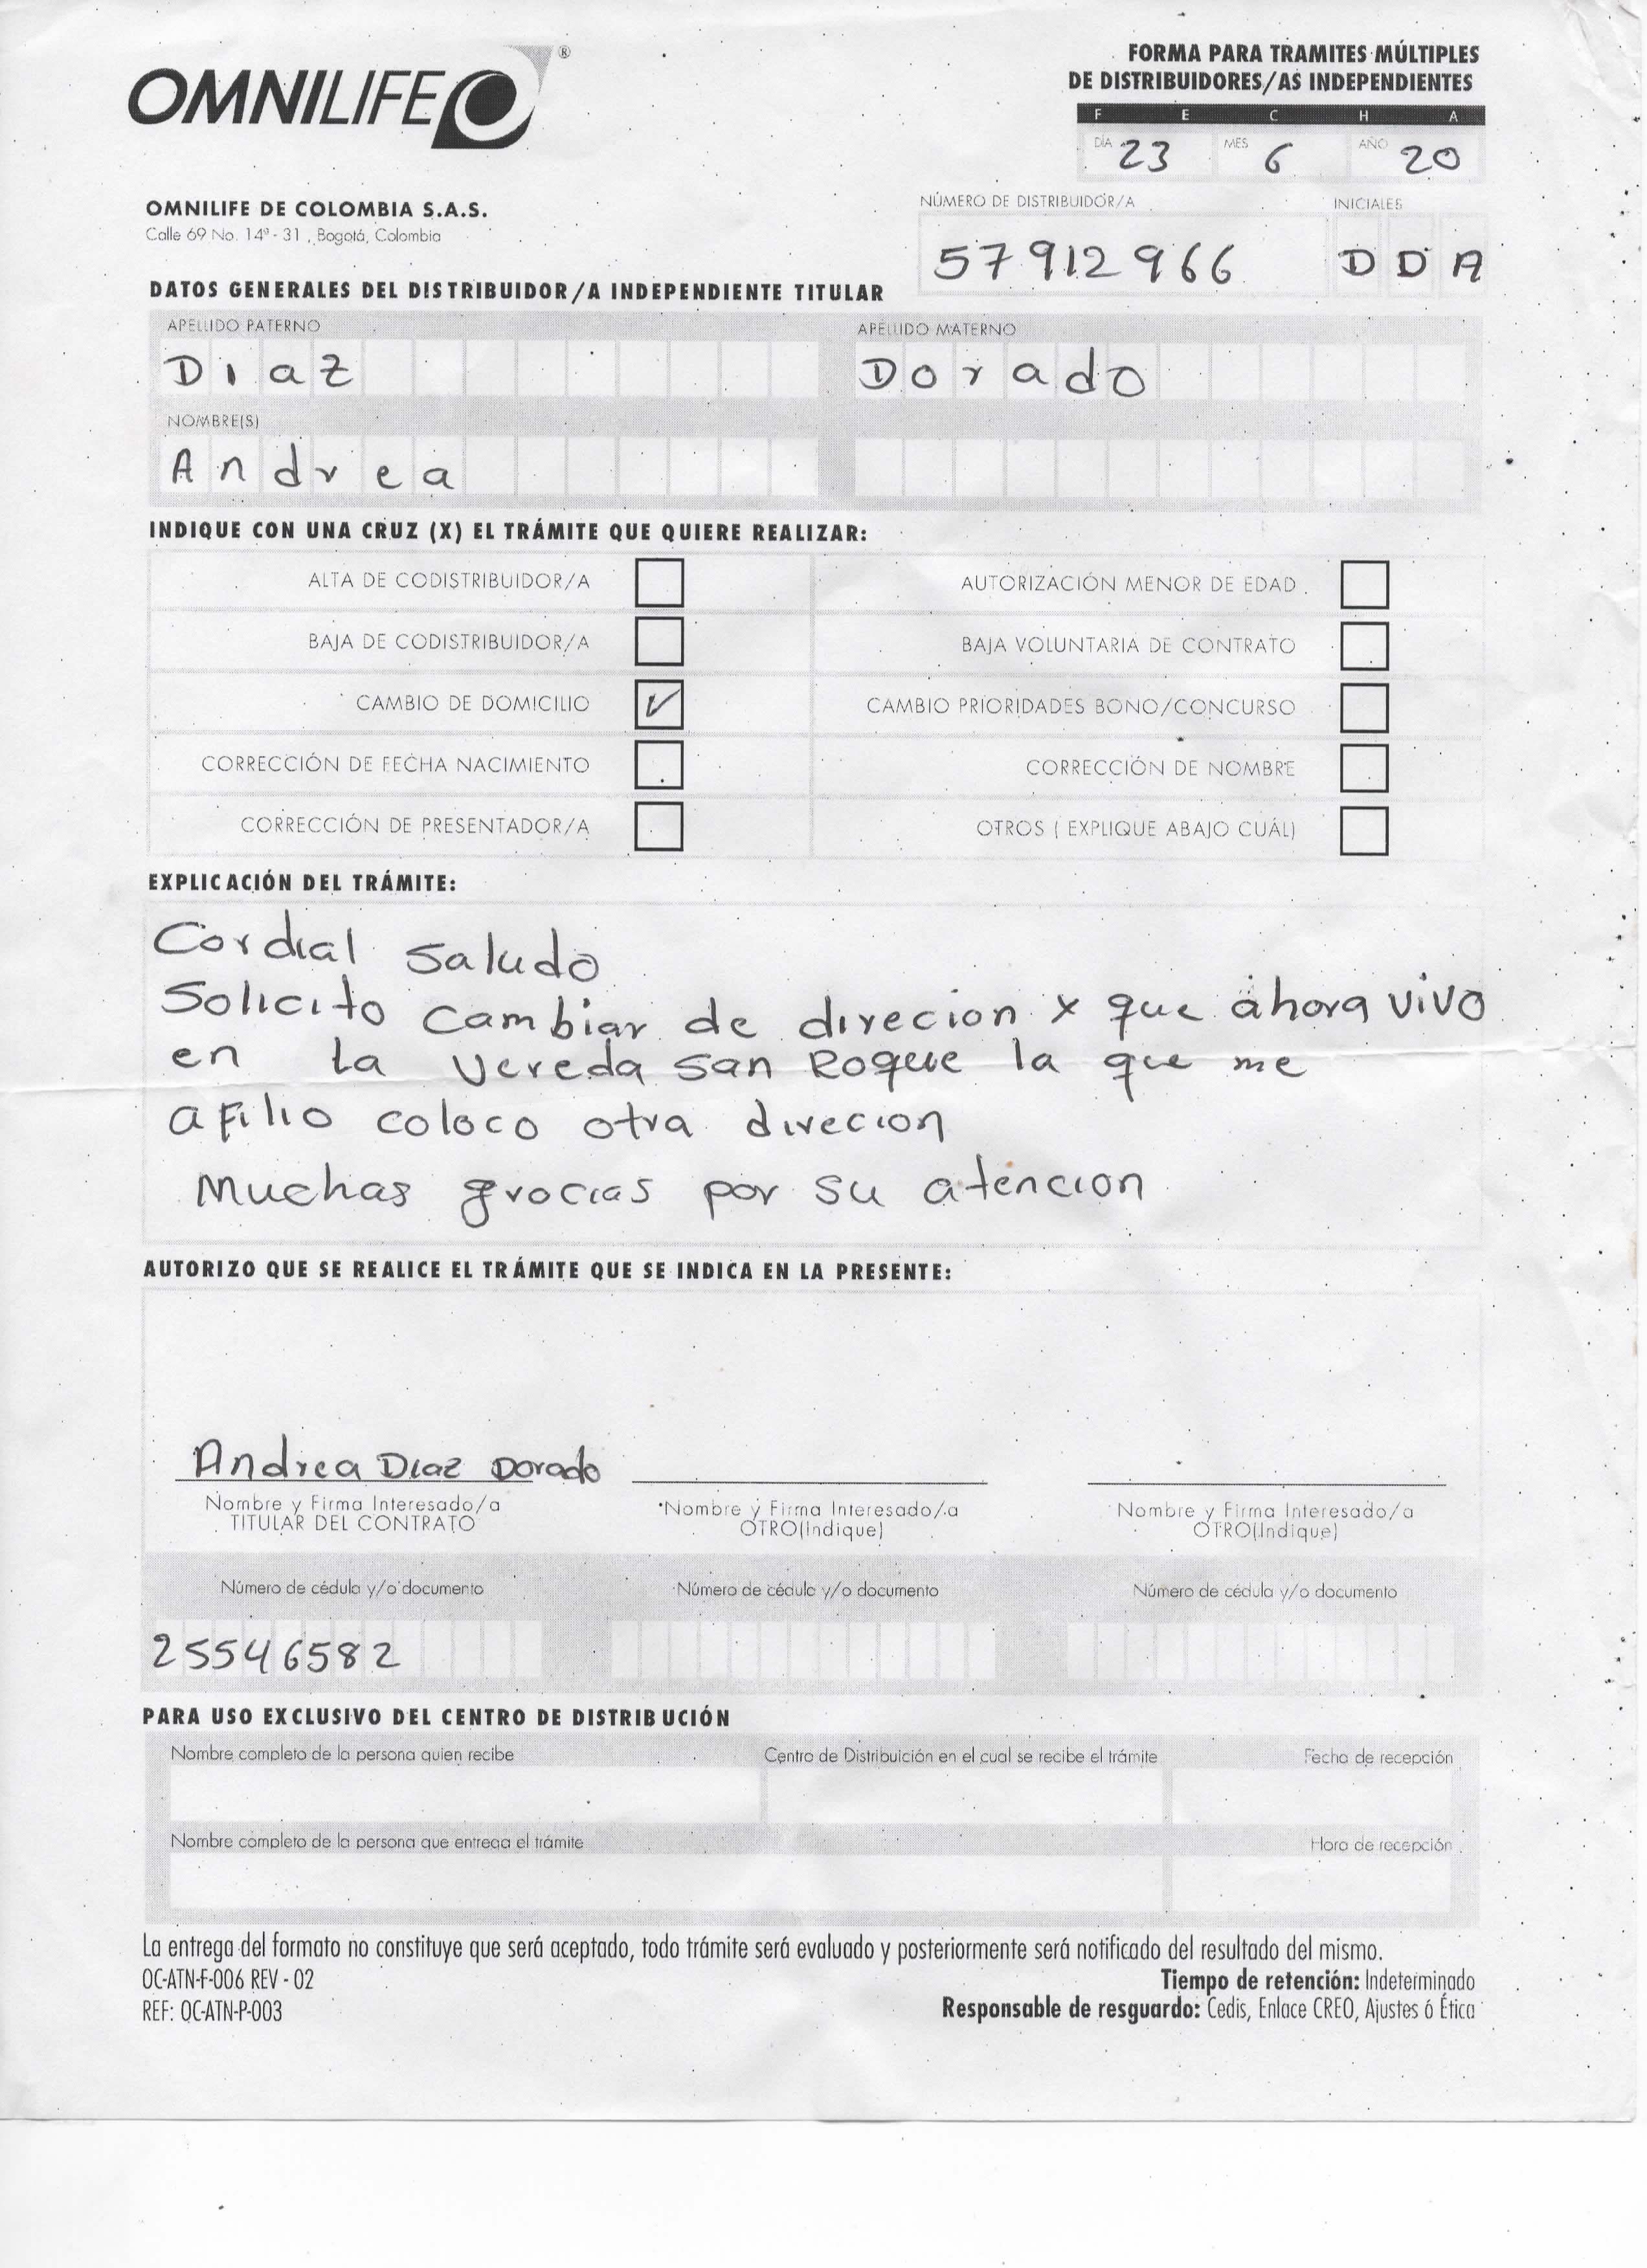 OMNILIFE ®
FORMA PARA TRAMITES MÚLTIPLES
DE DISTRIBUIDORES/AS INDEPENDIENTES
F E C H A
DÍA 23 MES 6 AÑO 20
OMNILIFE DE COLOMBIA S.A.S.
Calle 69 No. 14ª - 31 , Bogotá, Colombia
NÚMERO DE DISTRIBUIDOR/A INICIALES
57912966 D D A
DATOS GENERALES DEL DISTRIBUIDOR/A INDEPENDIENTE TITULAR
APELLIDO PATERNO APELLIDO MATERNO
Diaz Dorado
NOMBRE(S)
Andrea
INDIQUE CON UNA CRUZ (X) EL TRÁMITE QUE QUIERE REALIZAR:
ALTA DE CODISTRIBUIDOR/A AUTORIZACIÓN MENOR DE EDAD
BAJA DE CODISTRIBUIDOR/A BAJA VOLUNTARIA DE CONTRATO
CAMBIO DE DOMICILIO ✓ CAMBIO PRIORIDADES BONO/CONCURSO
CORRECCIÓN DE FECHA NACIMIENTO CORRECCIÓN DE NOMBRE
CORRECCIÓN DE PRESENTADOR/A OTROS ( EXPLIQUE ABAJO CUÁL)
EXPLICACIÓN DEL TRÁMITE:
Cordial saludo
Solicito cambiar de direcion x que ahora vivo
en la vereda san Roque la que me
afilio coloco otra direcion
Muchas grocias por su atencion
AUTORIZO QUE SE REALICE EL TRÁMITE QUE SE INDICA EN LA PRESENTE:
Andrea Diaz Dorado
Nombre y Firma Interesado/a Nombre y Firma Interesado/a Nombre y Firma Interesado/a
TITULAR DEL CONTRATO OTRO(Indique) OTRO(Indique)
Número de cédula y/o documento Número de cédula y/o documento Número de cédula y/o documento
25546582
PARA USO EXCLUSIVO DEL CENTRO DE DISTRIBUCIÓN
Nombre completo de la persona quien recibe Centro de Distribuición en el cual se recibe el trámite Fecha de recepción
Nombre completo de la persona que entrega el trámite Hora de recepción
La entrega del formato no constituye que será aceptado, todo trámite será evaluado y posteriormente será notificado del resultado del mismo.
OC-ATN-F-006 REV - 02 Tiempo de retención: Indeterminado
REF: OC-ATN-P-003 Responsable de resguardo: Cedis, Enlace CREO, Ajustes ó Ética